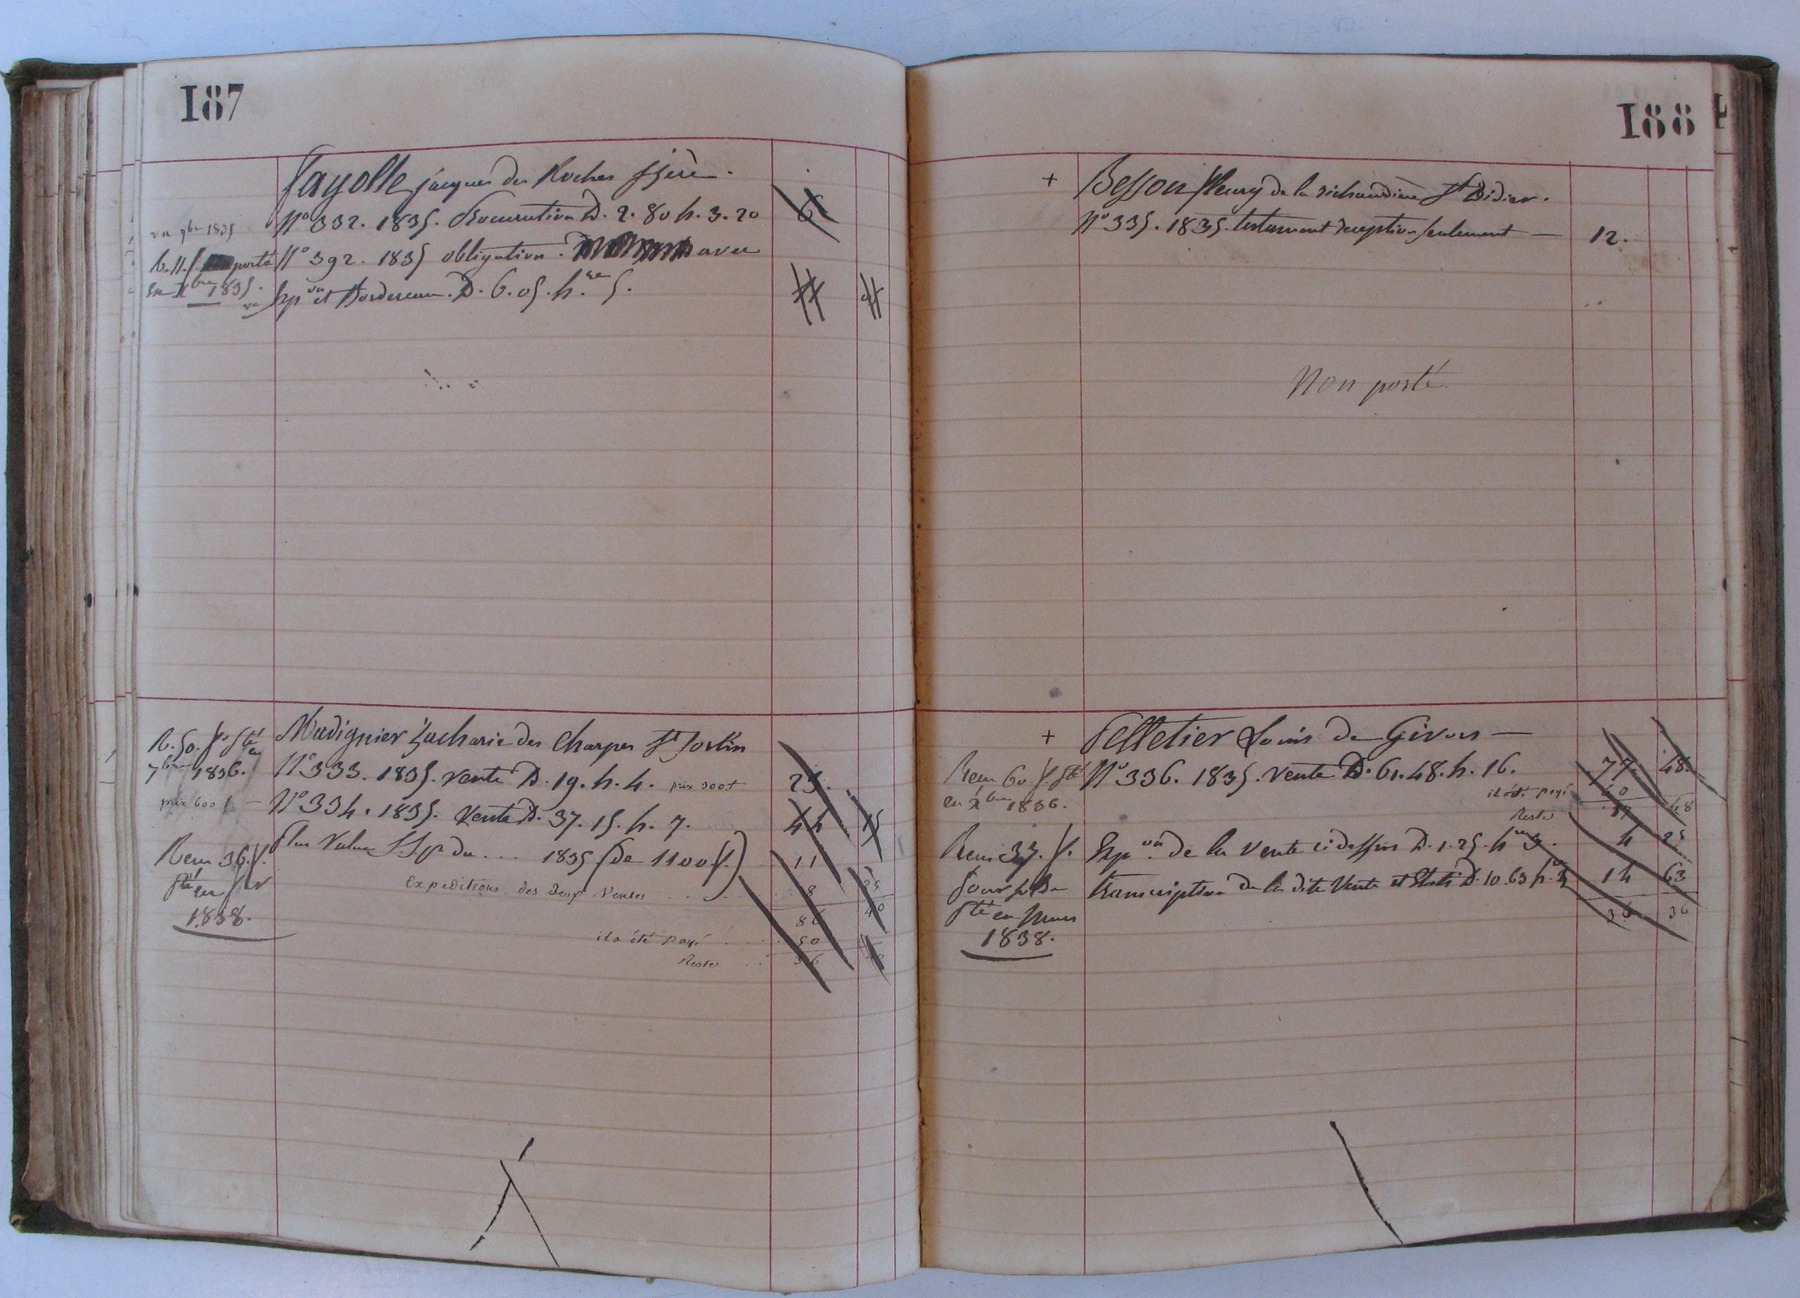 187
Fayolle jacques des Roches
N° 332. 1835. Procuration D. 2. 80 h. 3. 20
vu 9bre 1835
N° 392. 1835 obligation avec
porté
en Xbre 1835.
Expon et Bordereau. D. 6. 05. h.re 5.
R. 50. f. pté en
7bre 1836.
Madignier Zacharie des Charpes St Joslin
N° 333. 1835. vente D. 19. h. 4. prix 300f 23.
prix 600 f. — N° 334. 1835. vente D. 37. 15. h. 7. 44 15
Plus Value 1835 (de 1100 f.) 11
Reçu 36. f.
pté en
1838.
Expéditions des deux Ventes 8
86
il a été payé 50
Reste 36
188
+ Besson fleury de la richaudière St Didier.
N° 335. 1835. testament réception seulement — 12.
Non porté
+ Pelletier Louis de Givors —
Reçu 60. f. pté
en Xbre 1836.
N° 336. 1835. vente D. 61. 48. h. 16. 77. 48.
il a été payé 60
Reste 17 48
Reçu 37. f.
pté en
1838.
Expon de la vente ci dessus D. 1. 25. h.re 3. 4 25
transcription de la dite Vente et État D. 10. 63 h. 4 14 63
36 36